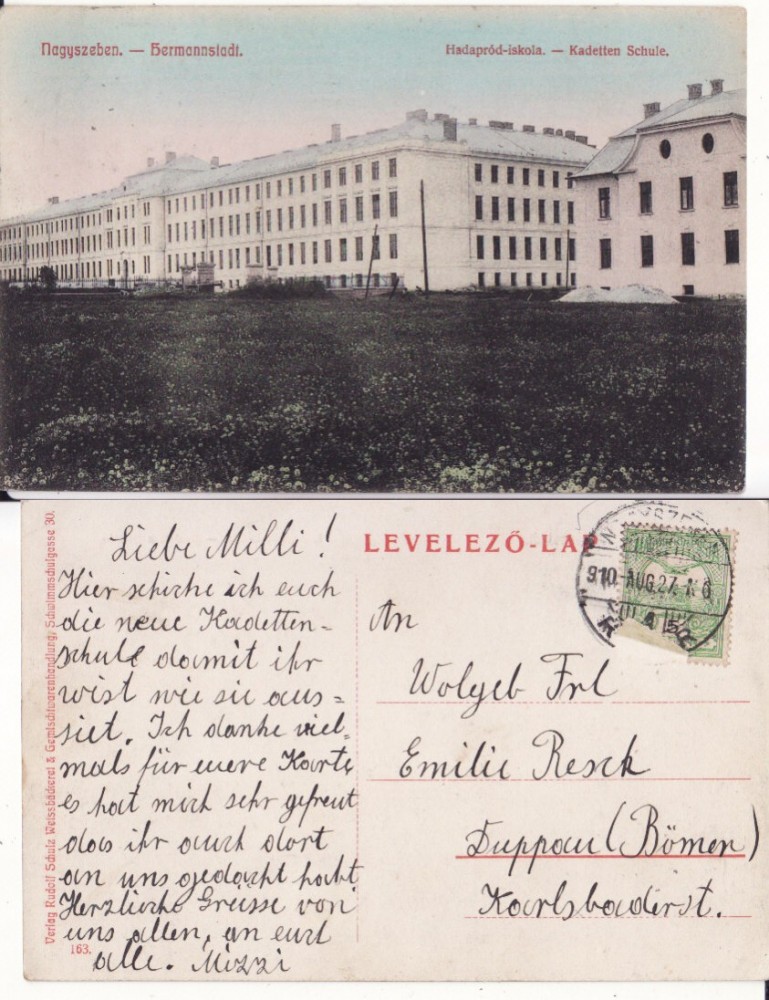 Nagyszeben. — Hermannstadt.
Hadapród-iskola. — Kadetten Schule.
Verlag Rudolf Schulz Weissbäckerei & Gemischtwarenhandlung, Schwimmschulgasse 30.
163.
Liebe Milli!
Hier schicke ich euch
die neue Kadetten-
schule damit ihr
wist wie sie aus=
siet. Ich danke viel-
mals für euere Karte
es hat mich sehr gefreut
das ihr auch dort
an uns gedacht habt
Herzliche Grüsse von
uns allen, an euch
alle. Mizzi
LEVELEZŐ-LAP
910. AUG. 27.
An
Wolgeb Frl
Emilie Resek
Duppau (Bömen)
Karlsbaderst.